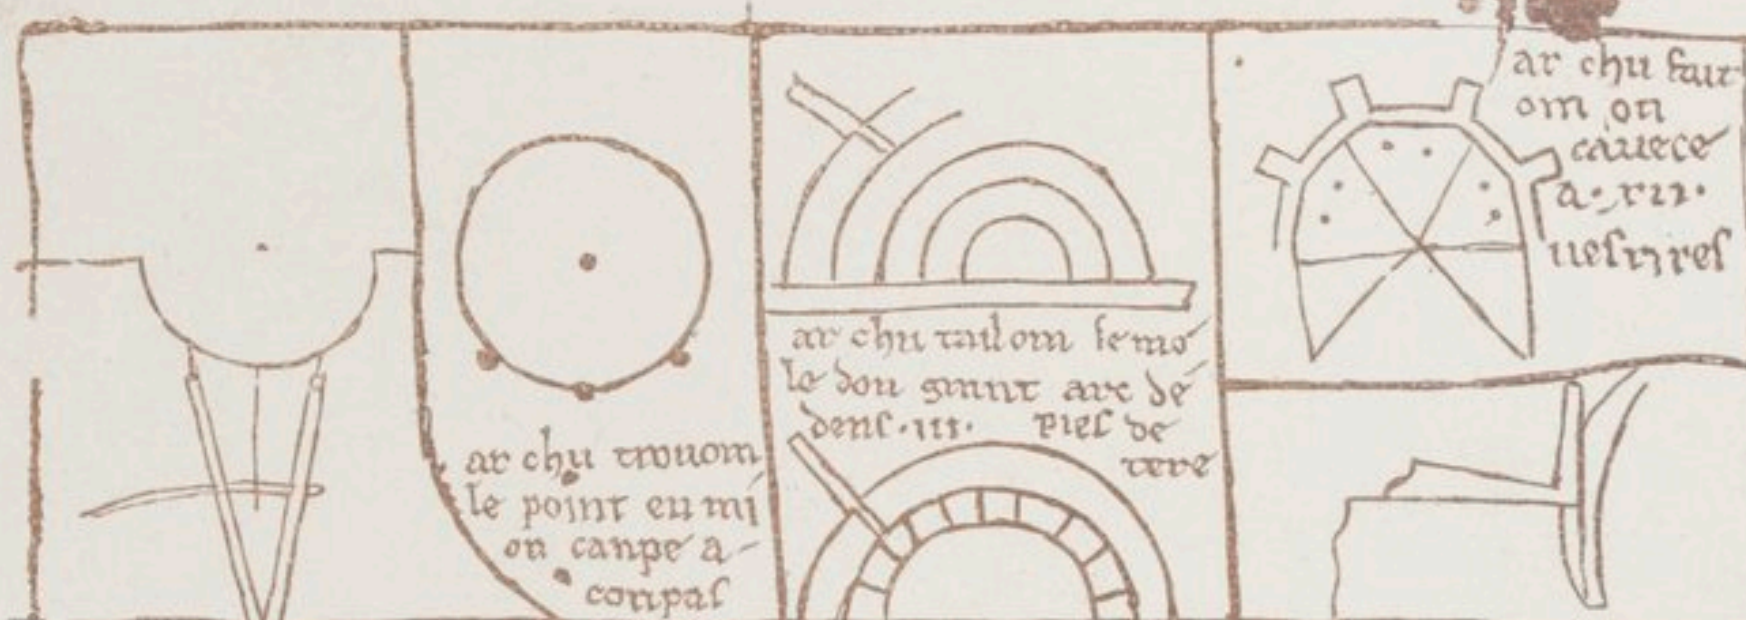 ar chu trouom
le point en mi
on canpe a
conpas
ar chu tailom le mo
le don grant arc de
dens .iii. pies de
tere
ar chu fait
om on
cavece
a .xii.
uesrires